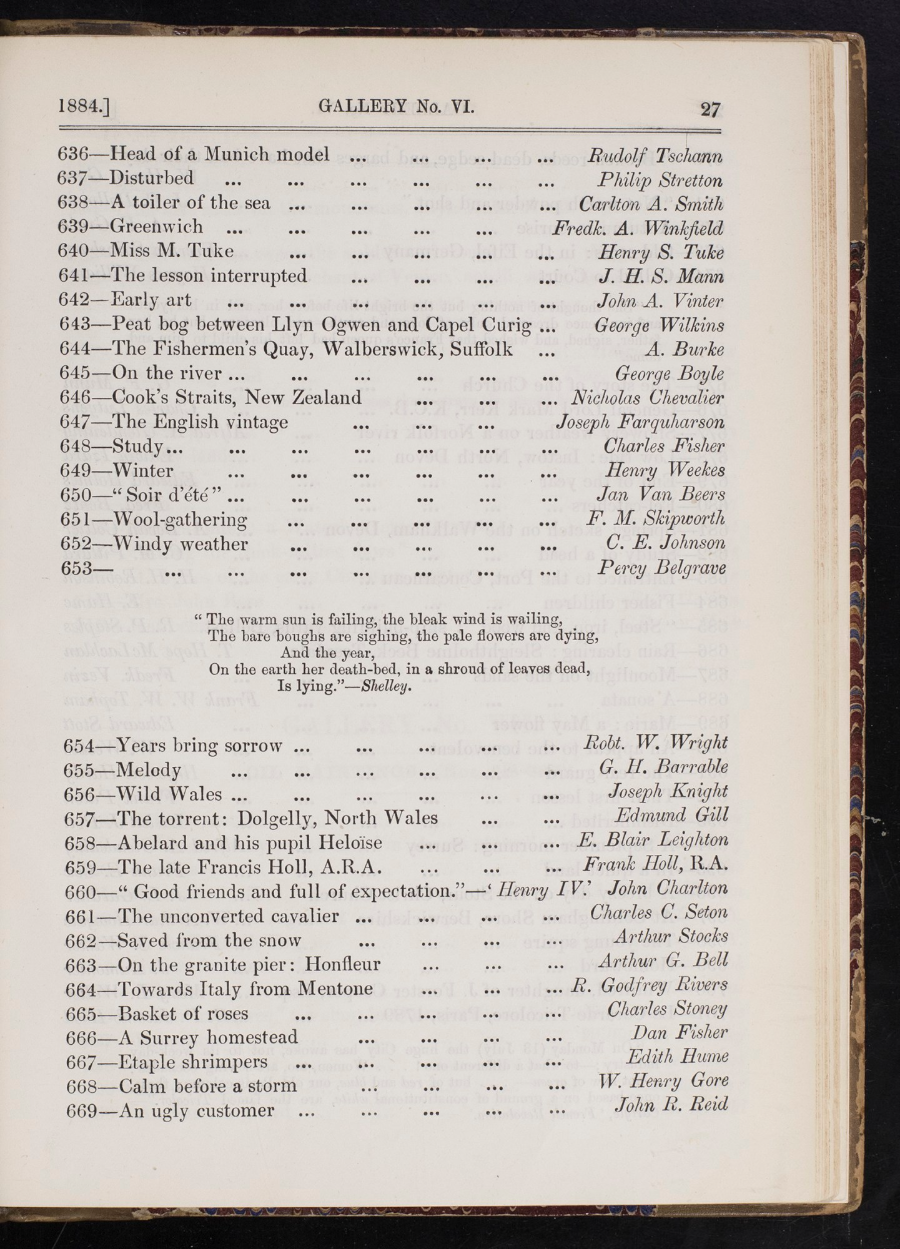 1884.] GALLERY No. VI. 27
636—Head of a Munich model ... ... ... ... Rudolf Tschann
637—Disturbed ... ... ... ... ... ... Philip Stretton
638—A toiler of the sea ... ... ... ... ... Carlton A. Smith
639—Greenwich ... ... ... ... ... Fredk. A. Winkfield
640—Miss M. Tuke ... ... ... ... ... Henry S. Tuke
641—The lesson interrupted ... ... ... ... J. H. S. Mann
642—Early art ... ... ... ... ... ... John A. Vinter
643—Peat bog between Llyn Ogwen and Capel Curig ... George Wilkins
644—The Fishermen's Quay, Walberswick, Suffolk ... A. Burke
645—On the river ... ... ... ... ... ... George Boyle
646—Cook's Straits, New Zealand ... ... ... Nicholas Chevalier
647—The English vintage ... ... ... Joseph Farquharson
648—Study... ... ... ... ... ... ... Charles Fisher
649—Winter ... ... ... ... ... ... Henry Weekes
650—“ Soir d'été ” ... ... ... ... ... ... Jan Van Beers
651—Wool-gathering ... ... ... ... ... F. M. Skipworth
652—Windy weather ... ... ... ... ... C. E. Johnson
653— ... ... ... ... ... ... ... Percy Belgrave
“ The warm sun is failing, the bleak wind is wailing,
The bare boughs are sighing, the pale flowers are dying,
And the year,
On the earth her death-bed, in a shroud of leaves dead,
Is lying.”—Shelley.
654—Years bring sorrow ... ... ... ... ... Robt. W. Wright
655—Melody ... ... ... ... ... ... G. H. Barrable
656—Wild Wales ... ... ... ... ... ... Joseph Knight
657—The torrent: Dolgelly, North Wales ... ... Edmund Gill
658—Abelard and his pupil Heloïse ... ... ... E. Blair Leighton
659—The late Francis Holl, A.R.A. ... ... ... Frank Holl, R.A.
660—“ Good friends and full of expectation.”—‘ Henry IV.’ John Charlton
661—The unconverted cavalier ... ... ... ... Charles C. Seton
662—Saved from the snow ... ... ... ... Arthur Stocks
663—On the granite pier: Honfleur ... ... ... Arthur G. Bell
664—Towards Italy from Mentone ... ... ... R. Godfrey Rivers
665—Basket of roses ... ... ... ... ... Charles Stoney
666—A Surrey homestead ... ... ... ... Dan Fisher
667—Etaple shrimpers ... ... ... ... ... Edith Hume
668—Calm before a storm ... ... ... ... W. Henry Gore
669—An ugly customer ... ... ... ... ... John R. Reid